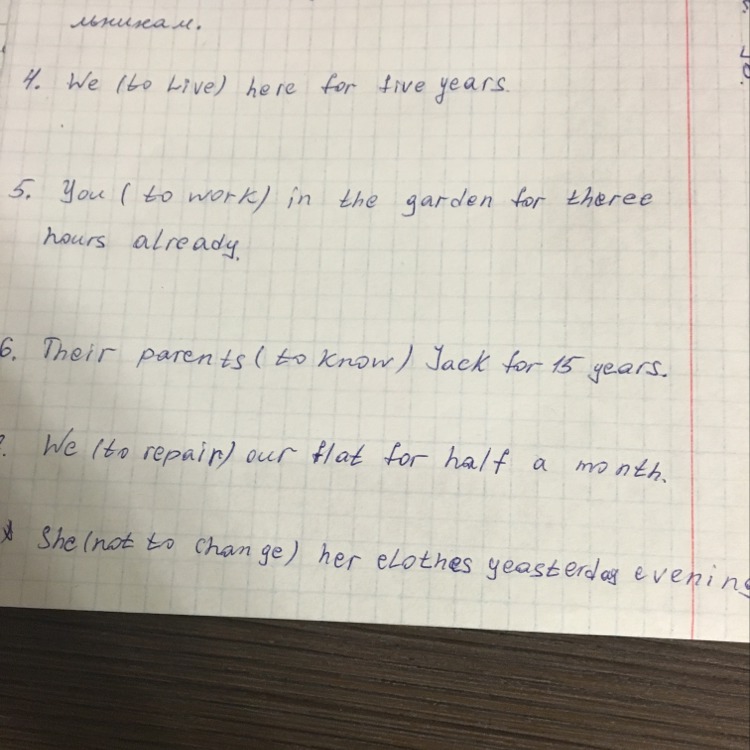 льникам.
4. We (to Live) here for five years.
5. You (to work) in the garden for theree
hours already.
6. Their parents (to know) Jack for 15 years.
We (to repair) our flat for half a month.
She (not to change) her clothes yeasterday evening